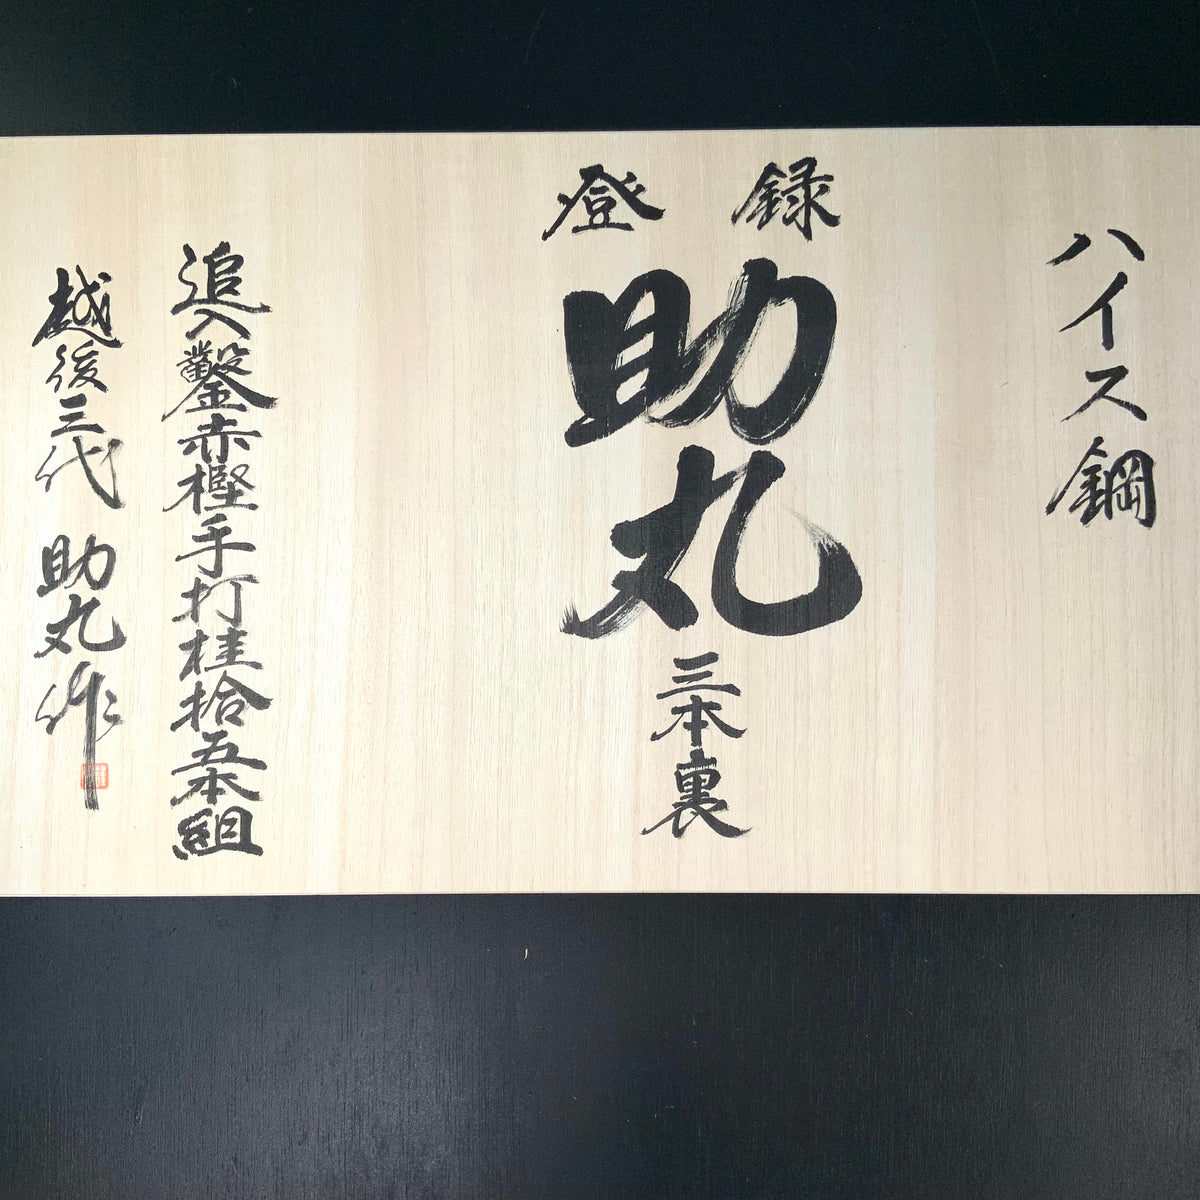 ハイス鋼
登録
助丸
三本裏
追入鑿赤樫手打桂拾五本組
越後三代 助丸作